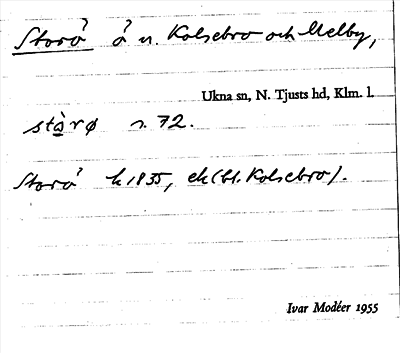 Storå å n. Kolsebro och Melby,
Ukna sn, N. Tjusts hd, Klm. l.
stàrø s. 72.
Storå k 1835, ek (bl. Kolsebro).
Ivar Modéer 1955